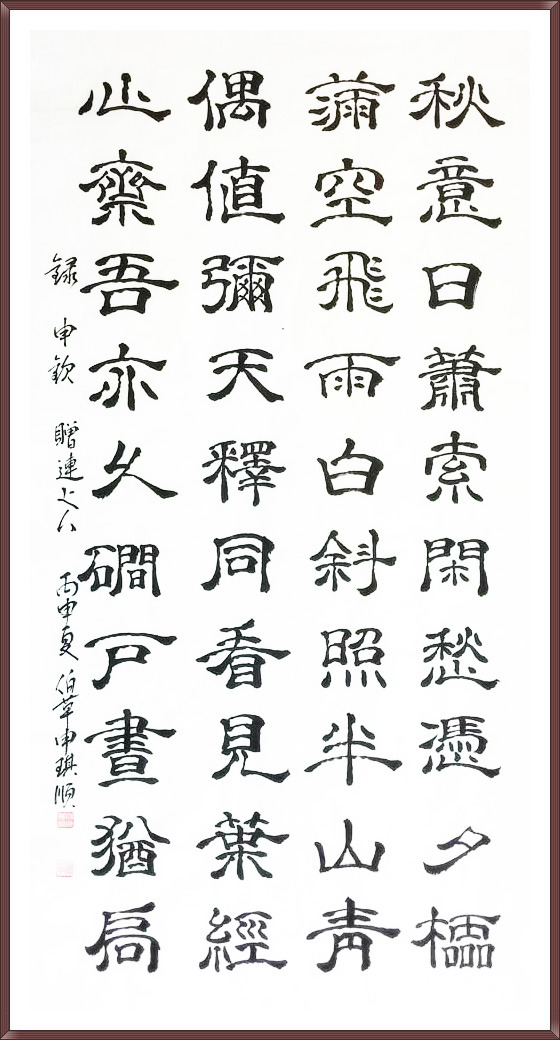 秋意日蕭索閑愁憑夕櫺
滿空飛雨白斜照半山青
偶値彌天釋同看見葉經
心齋吾亦久磵戶晝猶扃
錄 申欽 贈連上人 丙申夏 申琪順